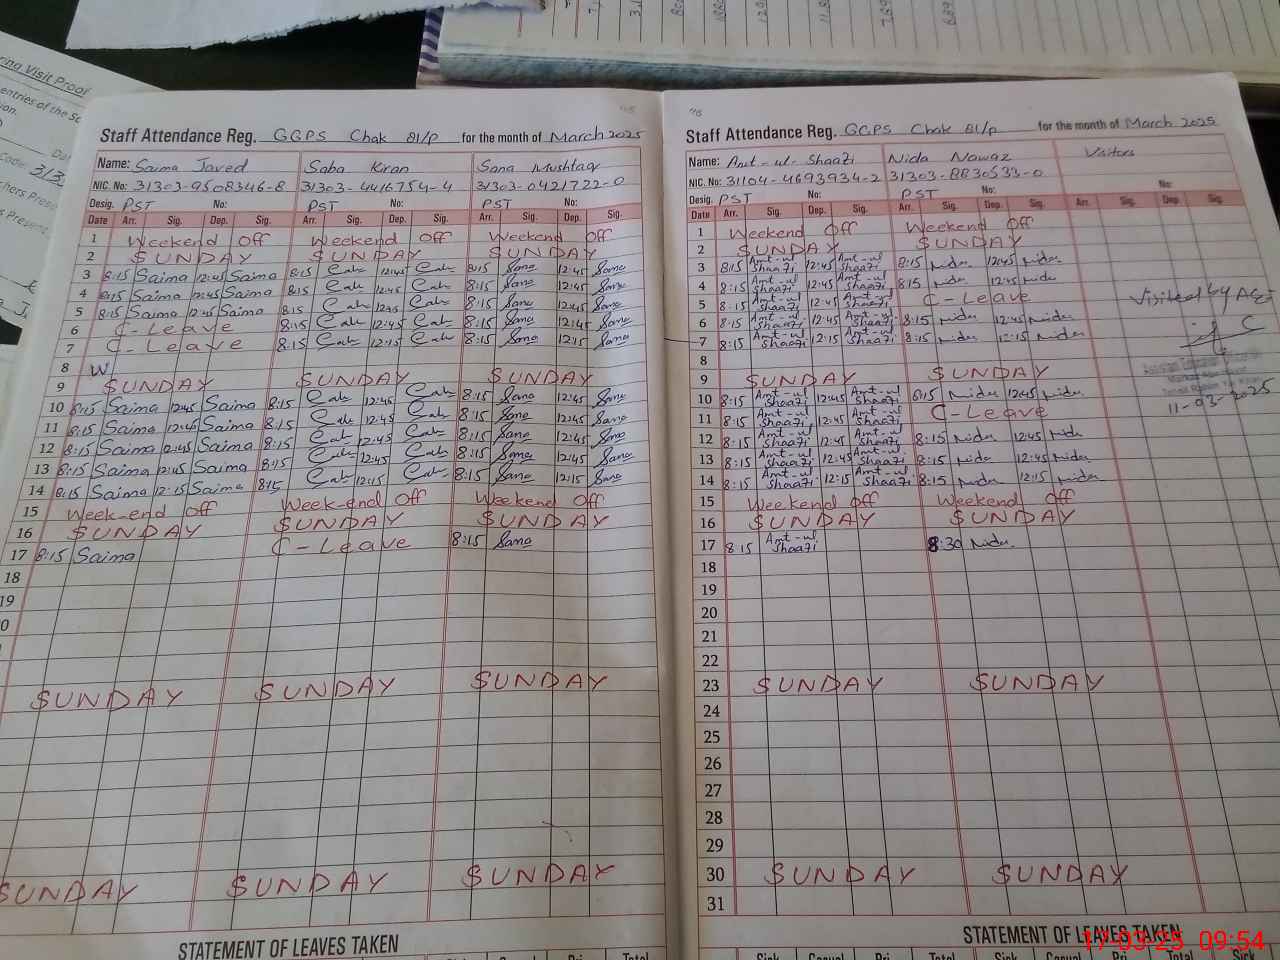 ring Visit Proof
entries of the Sc
ion.
Code: 313
hers Prese
s Present
45
Staff Attendance Reg. GGPS Chak 81/P for the month of March 2025
Name: Saima Javed Saba Kiran Sana Mushtaq
NIC. No: 31303-9508346-8 31303-4416754-4 31303-0421722-0
Desig. PST No: PST No: PST No:
Date Arr. Sig. Dep. Sig. Arr. Sig. Dep. Sig. Arr. Sig. Dep. Sig.
1 Weekend Off Weekend Off Weekend Off
2 SUNDAY SUNDAY SUNDAY
3 8:15 Saima 12:45 Saima 8:15 12:45 8:15 Sana 12:45 Sana
4 8:15 Saima 12:45 Saima 8:15 12:45 8:15 Sana 12:45 Sana
5 8:15 Saima 12:45 Saima 8:15 12:45 8:15 Sana 12:45 Sana
6 C-Leave 8:15 12:45 8:15 Sana 12:45 Sana
7 C-Leave 8:15 12:15 8:15 Sana 12:15 Sana
8 W
9 SUNDAY SUNDAY SUNDAY
10 8:15 Saima 12:45 Saima 8:15 12:45 8:15 Sana 12:45 Sana
11 8:15 Saima 12:45 Saima 8:15 12:45 8:15 Sana 12:45 Sana
12 8:15 Saima 12:45 Saima 8:15 12:45 8:15 Sana 12:45 Sana
13 8:15 Saima 12:45 Saima 8:15 12:45 8:15 Sana 12:45 Sana
14 8:15 Saima 12:15 Saima 8:15 12:15 8:15 Sana 12:15 Sana
15 Week-end Off Week-end Off Weekend Off
16 SUNDAY SUNDAY SUNDAY
17 8:15 Saima C-Leave 8:15 Sana
18
19
0
SUNDAY SUNDAY SUNDAY
SUNDAY SUNDAY SUNDAY
STATEMENT OF LEAVES TAKEN
46
Staff Attendance Reg. GGPS Chak 81/P for the month of March 2025
Name: Amt-ul-Shaafi Nida Nawaz Visitors
NIC. No: 31104-4693934-2 31303-8830533-0
Desig. PST No: PST No: No:
Date Arr. Sig. Dep. Sig. Arr. Sig. Dep. Sig. Arr. Sig. Dep. Sig.
1 Weekend Off Weekend Off
2 SUNDAY SUNDAY
3 8:15 Amt-ul Shaafi 12:45 Amt-ul Shaafi 8:15 Nida 12:45 Nida
4 8:15 Amt-ul Shaafi 12:45 Amt-ul Shaafi 8:15 Nida 12:45 Nida
5 8:15 Amt-ul Shaafi 12:45 Amt-ul Shaafi C-Leave Visited by AEO
6 8:15 Amt-ul Shaafi 12:45 Amt-ul Shaafi 8:15 Nida 12:45 Nida
7 8:15 Amt-ul Shaafi 12:15 Amt-ul Shaafi 8:15 Nida 12:15 Nida
8
9 SUNDAY SUNDAY
10 8:15 Amt-ul Shaafi 12:45 Amt-ul Shaafi 8:15 Nida 12:45 Nida 11-03-2025
11 8:15 Amt-ul Shaafi 12:45 Amt-ul Shaafi C-Leave
12 8:15 Amt-ul Shaafi 12:45 Amt-ul Shaafi 8:15 Nida 12:45 Nida
13 8:15 Amt-ul Shaafi 12:45 Amt-ul Shaafi 8:15 Nida 12:45 Nida
14 8:15 Amt-ul Shaafi 12:15 Amt-ul Shaafi 8:15 Nida 12:15 Nida
15 Weekend Off Weekend Off
16 SUNDAY SUNDAY
17 8:15 Amt-ul Shaafi 8:30 Nida
18
19
20
21
22
23 SUNDAY SUNDAY
24
25
26
27
28
29
30 SUNDAY SUNDAY
31
STATEMENT OF LEAVES TAKEN
Sick Casual Pri. Total Sick Casual Pri. Total Sick
17-03-25 09:54